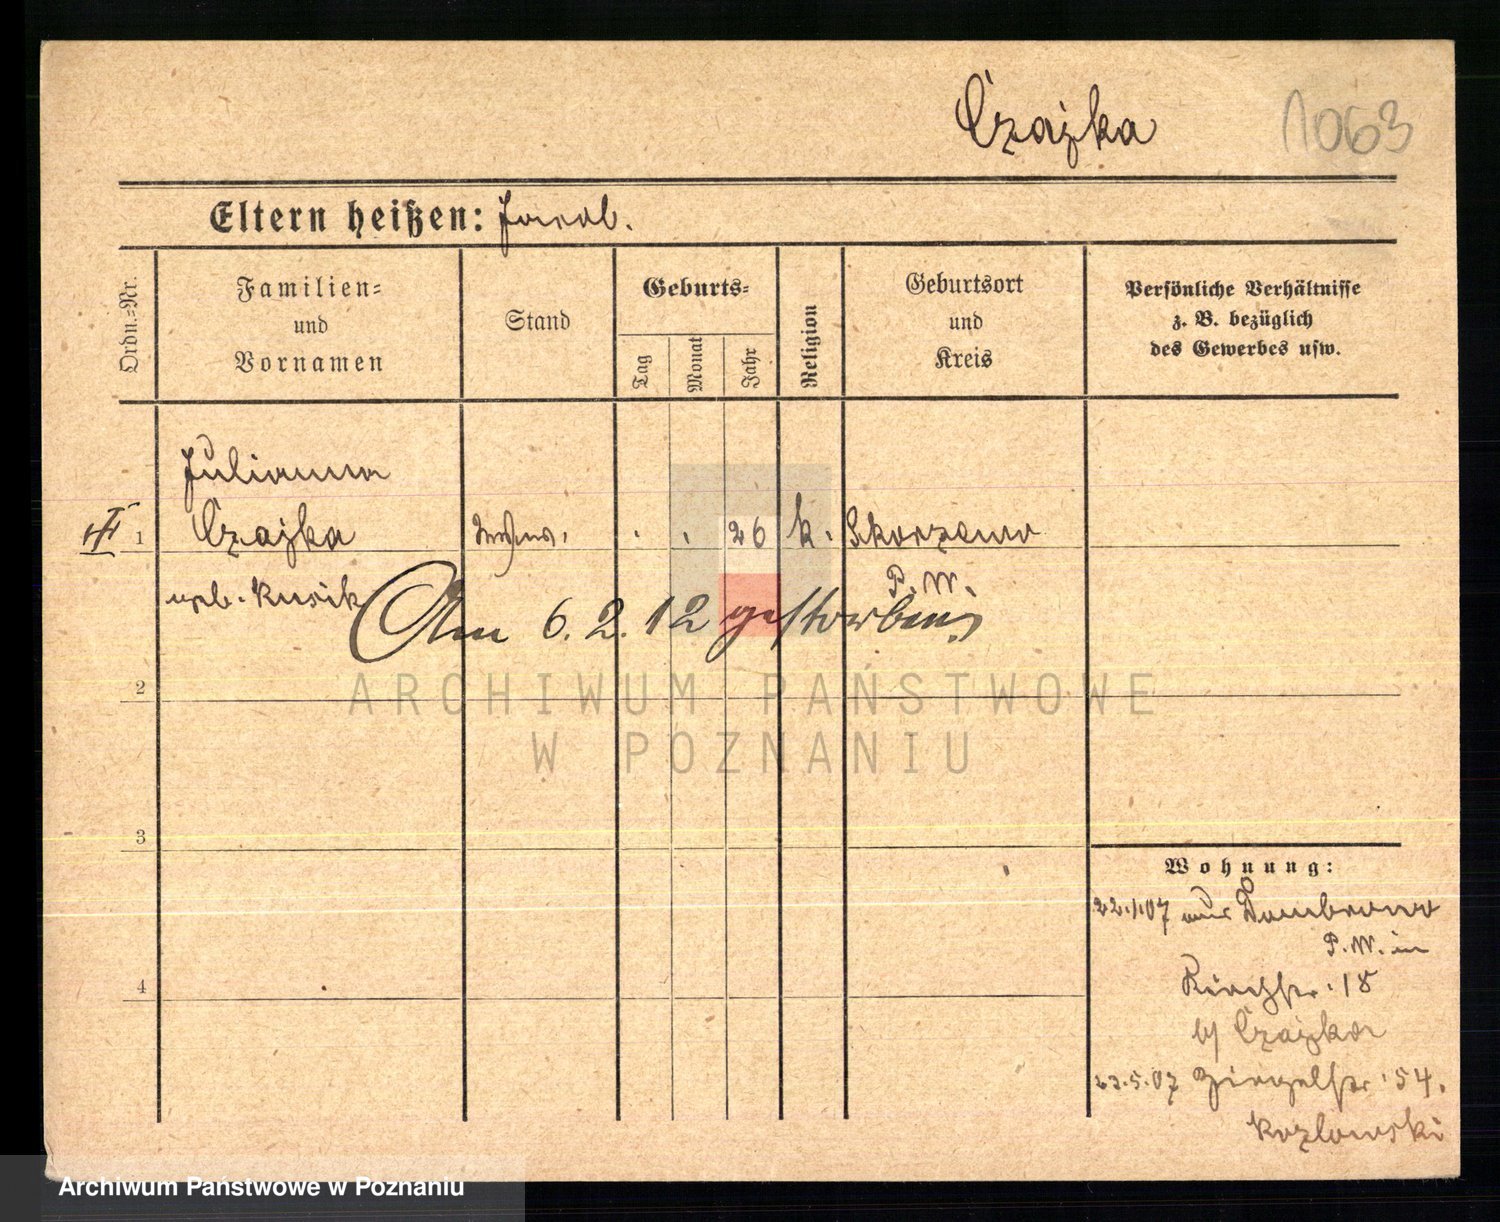 Czajka
1063
Eltern heißen: Jacob.
Ordn.-Nr.
Familien- und Vornamen
Stand
Geburts-
Tag
Monat
Jahr
Religion
Geburtsort und Kreis
Persönliche Verhältnisse z. B. bezüglich des Gewerbes usw.
Julianna
1 Czajka . . 26 k. Skorzewo
geb. Kusik P. W.
Am 6. 2. 12 gestorben
2
3
4
Wohnung:
22.1.07 aus Dombrowo
P. W. in
Kirchstr. 18
b/ Czajka
23.5.07 Ziegelstr. 54.
Kozlowski
ARCHIWUM PAŃSTWOWE
W POZNANIU
Archiwum Państwowe w Poznaniu